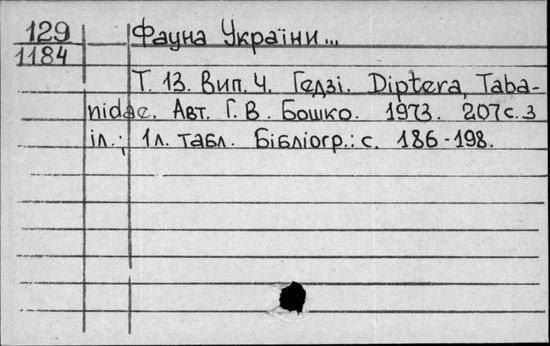 129
1184
Фауна України...
Т. 13. Вип. 4. Гедзі. Diptera, Taba-
nidae. Авт. Г. В. Бошко. 1973. 207с. з
іл.; 1л. табл. Бібліогр.: с. 186-198.